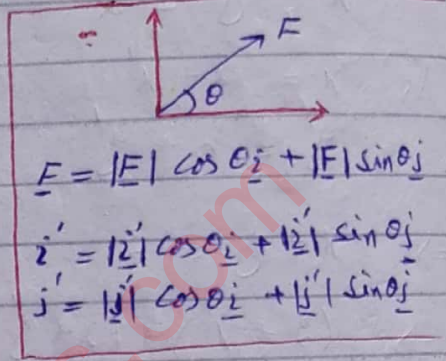 F
θ
F = |F| cos θi + |F| sinθj
i' = |i'| cosθi + |i'| sin θj
j' = |j'| cosθi + |j'| sinθj
.com